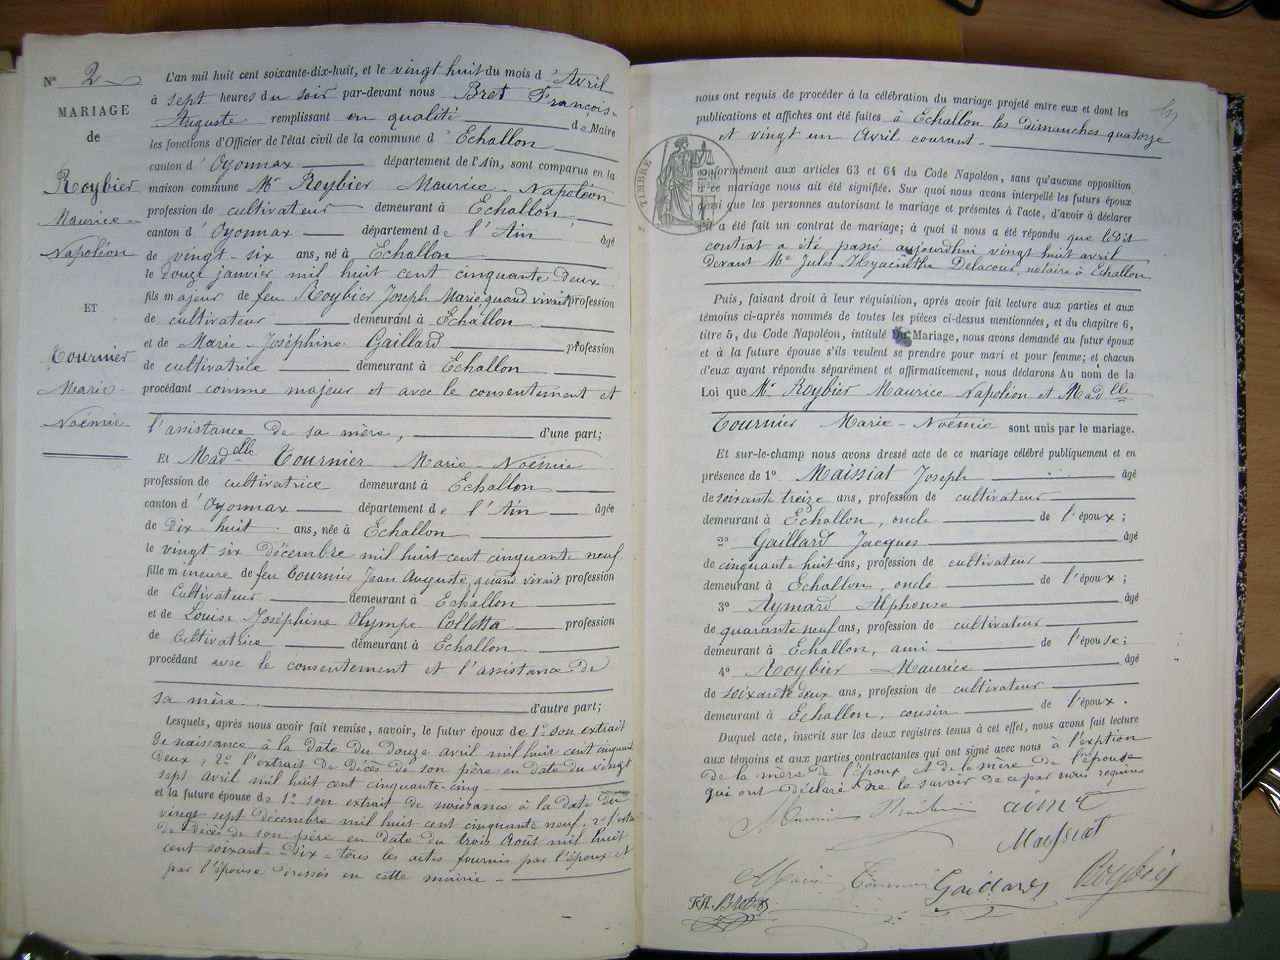 N° 2
MARIAGE
de
Roybier
Maurice-
Napoléon
ET
Tournier
Marie-
Noémie
L'an mil huit cent soixante-dix-huit, et le vingt huit du mois d'Avril
à sept heures du soir par-devant nous Bret François-
Auguste remplissant en qualité de Maire
les fonctions d'Officier de l'état civil de la commune d'Echallon
canton d'Oyonnax département de l'Ain, sont comparus en la
maison commune Mr Roybier Maurice-Napoléon
profession de cultivateur demeurant à Echallon
canton d'Oyonnax département de l'Ain âgé
de vingt-six ans, né à Echallon
le douze janvier mil huit cent cinquante deux
fils majeur de feu Roybier Joseph Marie, quand vivait profession
de cultivateur demeurant à Echallon
et de Marie-Joséphine Gaillard profession
de cultivatrice demeurant à Echallon
procédant comme majeur et avec le consentement et
l'assistance de sa mère, d'une part;
Et Madelle Tournier Marie-Noémie
profession de cultivatrice demeurant à Echallon
canton d'Oyonnax département de l'Ain âgée
de Dix-huit ans, née à Echallon
le vingt six décembre mil huit cent cinquante neuf
fille mineure de feu Tournier Jean Auguste, quand vivait profession
de Cultivateur demeurant à Echallon
et de Louise Joséphine Olympe Colletta profession
de Cultivatrice demeurant à Echallon
procédant avec le consentement et l'assistance de
sa mère. d'autre part;
Lesquels, après nous avoir fait remise, savoir, le futur époux de 1° son extrait
de naissance à la date du douze avril mil huit cent cinquante
deux, 2° l'extrait de décès de son père en date du vingt
sept avril mil huit cent cinquante-cinq
et la future épouse de 1° son extrait de naissance à la date du
vingt sept décembre mil huit cent cinquante neuf, 2° l'extrait
de décès de son père en date du trois Août mil huit
cent soixante-dix = tous les actes fournis par l'époux et
par l'épouse dressés en cette mairie
nous ont requis de procéder à la célébration du mariage projeté entre eux et dont les
publications et affiches ont été faites à Echallon les Dimanches quatorze
et vingt un Avril courant.
TIMBRE
Conformément aux articles 63 et 64 du Code Napoléon, sans qu'aucune opposition
à ce mariage nous ait été signifiée. Sur quoi nous avons interpellé les futurs époux
ainsi que les personnes autorisant le mariage et présentes à l'acte, d'avoir à déclarer
s'il a été fait un contrat de mariage; à quoi il nous a été répondu que ledit
contrat a été passé aujourdhui vingt huit avril
devant Me Jules Hyacinthe Delacour, notaire à Echallon
Puis, faisant droit à leur réquisition, après avoir fait lecture aux parties et aux
témoins ci-après nommés de toutes les pièces ci-dessus mentionnées, et du chapitre 6,
titre 5, du Code Napoléon, intitulé Du Mariage, nous avons demandé au futur époux
et à la future épouse s'ils veulent se prendre pour mari et pour femme; et chacun
d'eux ayant répondu séparément et affirmativement, nous déclarons Au nom de la
Loi que Mr Roybier Maurice Napoléon et Madelle
Tournier Marie-Noémie sont unis par le mariage.
Et sur-le-champ nous avons dressé acte de ce mariage célébré publiquement et en
présence de 1° Maissiat Joseph âgé
de soixante treize ans, profession de cultivateur
demeurant à Echallon, oncle de l'époux;
2° Gaillard Jacques âgé
de cinquante huit ans, profession de cultivateur
demeurant à Echallon, oncle de l'époux;
3° Aymard Alphonse âgé
de quarante neuf ans, profession de cultivateur
demeurant à Echallon, ami de l'épouse;
4° Roybier Maurice âgé
de soixante deux ans, profession de cultivateur
demeurant à Echallon, cousin de l'époux.
Duquel acte, inscrit sur les deux registres tenus à cet effet, nous avons fait lecture
aux témoins et aux parties contractantes qui ont signé avec nous à l'exption
de la mère de l'époux et de la mère de l'épouse
qui ont déclaré ne le savoir de ce par nous requises
Maissiat
Marie Tournier Gaillard Roybier